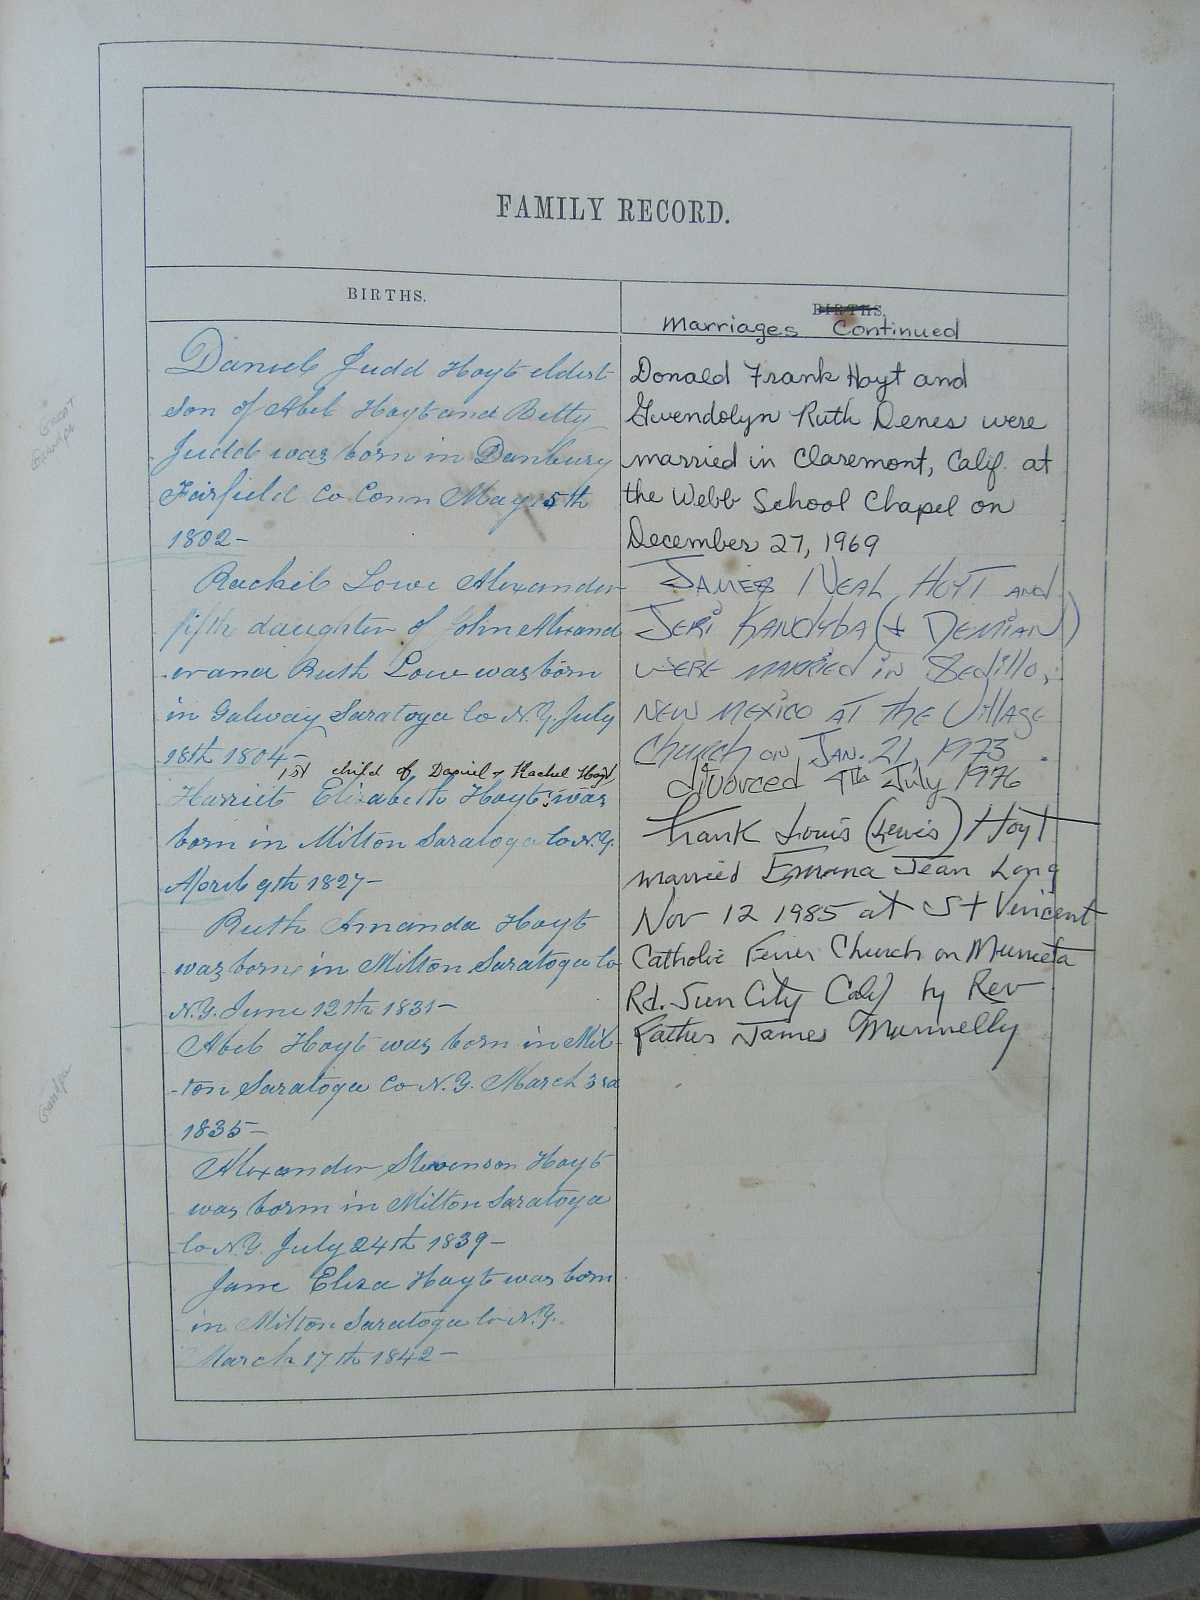 FAMILY RECORD.
BIRTHS.
Daniel Judd Hoyt eldest
son of Abel Hoyt and Betty
Judd was born in Danbury
Fairfield Co. Conn May 5th
1802-
Rachel Lowe Alexander
fifth daughter of John Alexand
er and Ruth Lowe was born
in Galway Saratoga Co N.Y. July
18th 1804-
1st child of Daniel & Rachel Hoyt
Harriet Elizabeth Hoyt was
born in Milton Saratoga Co N.Y.
April 9th 1827-
Ruth Amanda Hoyt
was born in Milton Saratoga Co
N.Y. June 12th 1831-
Abel Hoyt was born in Mil-
-ton Saratoga Co N.Y. March 3rd
1835-
Alexander Stevenson Hoyt
was born in Milton Saratoga
Co N.Y. July 24th 1839-
Jane Eliza Hoyt was born
in Milton Saratoga Co N.Y.
March 17th 1842-
BIRTHS.
Marriages Continued
Donald Frank Hoyt and
Gwendolyn Ruth Denes were
married in Claremont, Calif. at
the Webb School Chapel on
December 27, 1969
JAMES NEAL HOYT AND
JERI KANDYBA (& DEMIAN)
WERE MARRIED in Sedillo,
NEW MEXICO AT THE Village
Church ON JAN. 21, 1973.
divorced 4th July 1976
Frank Louis (Lewis) Hoyt
married Emma Jean Long
Nov 12 1985 at St Vincent
Catholic Church on Murrieta
Rd. Sun City Calif by Rev
Father James Munnelly
Great
Grandpa
Grandpa